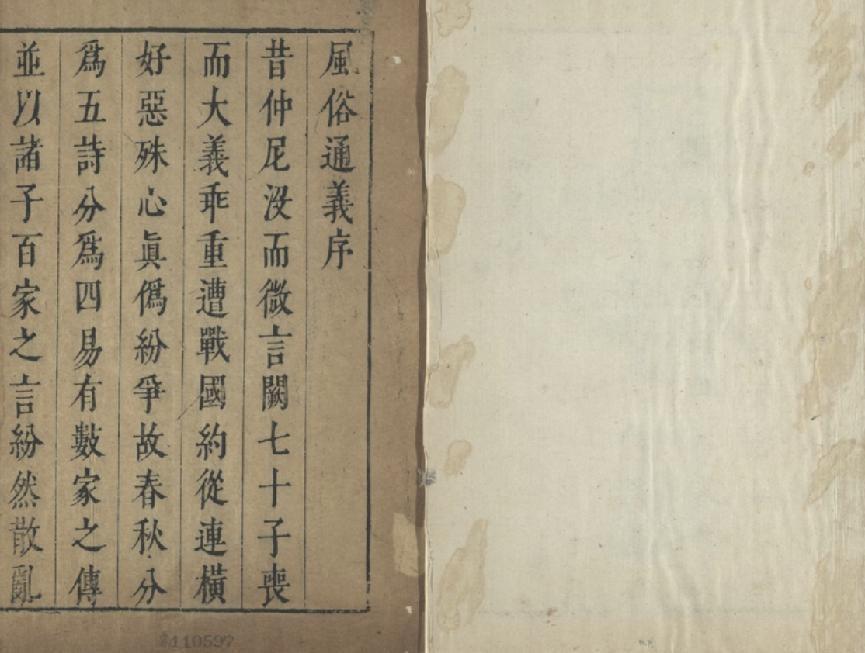 風俗通義序
昔仲尼没而微言闕七十子喪
而大義乖重遭戰國約從連橫
好惡殊心眞僞紛爭故春秋分
爲五詩分爲四易有數家之傳
並以諸子百家之言紛然散亂
110597